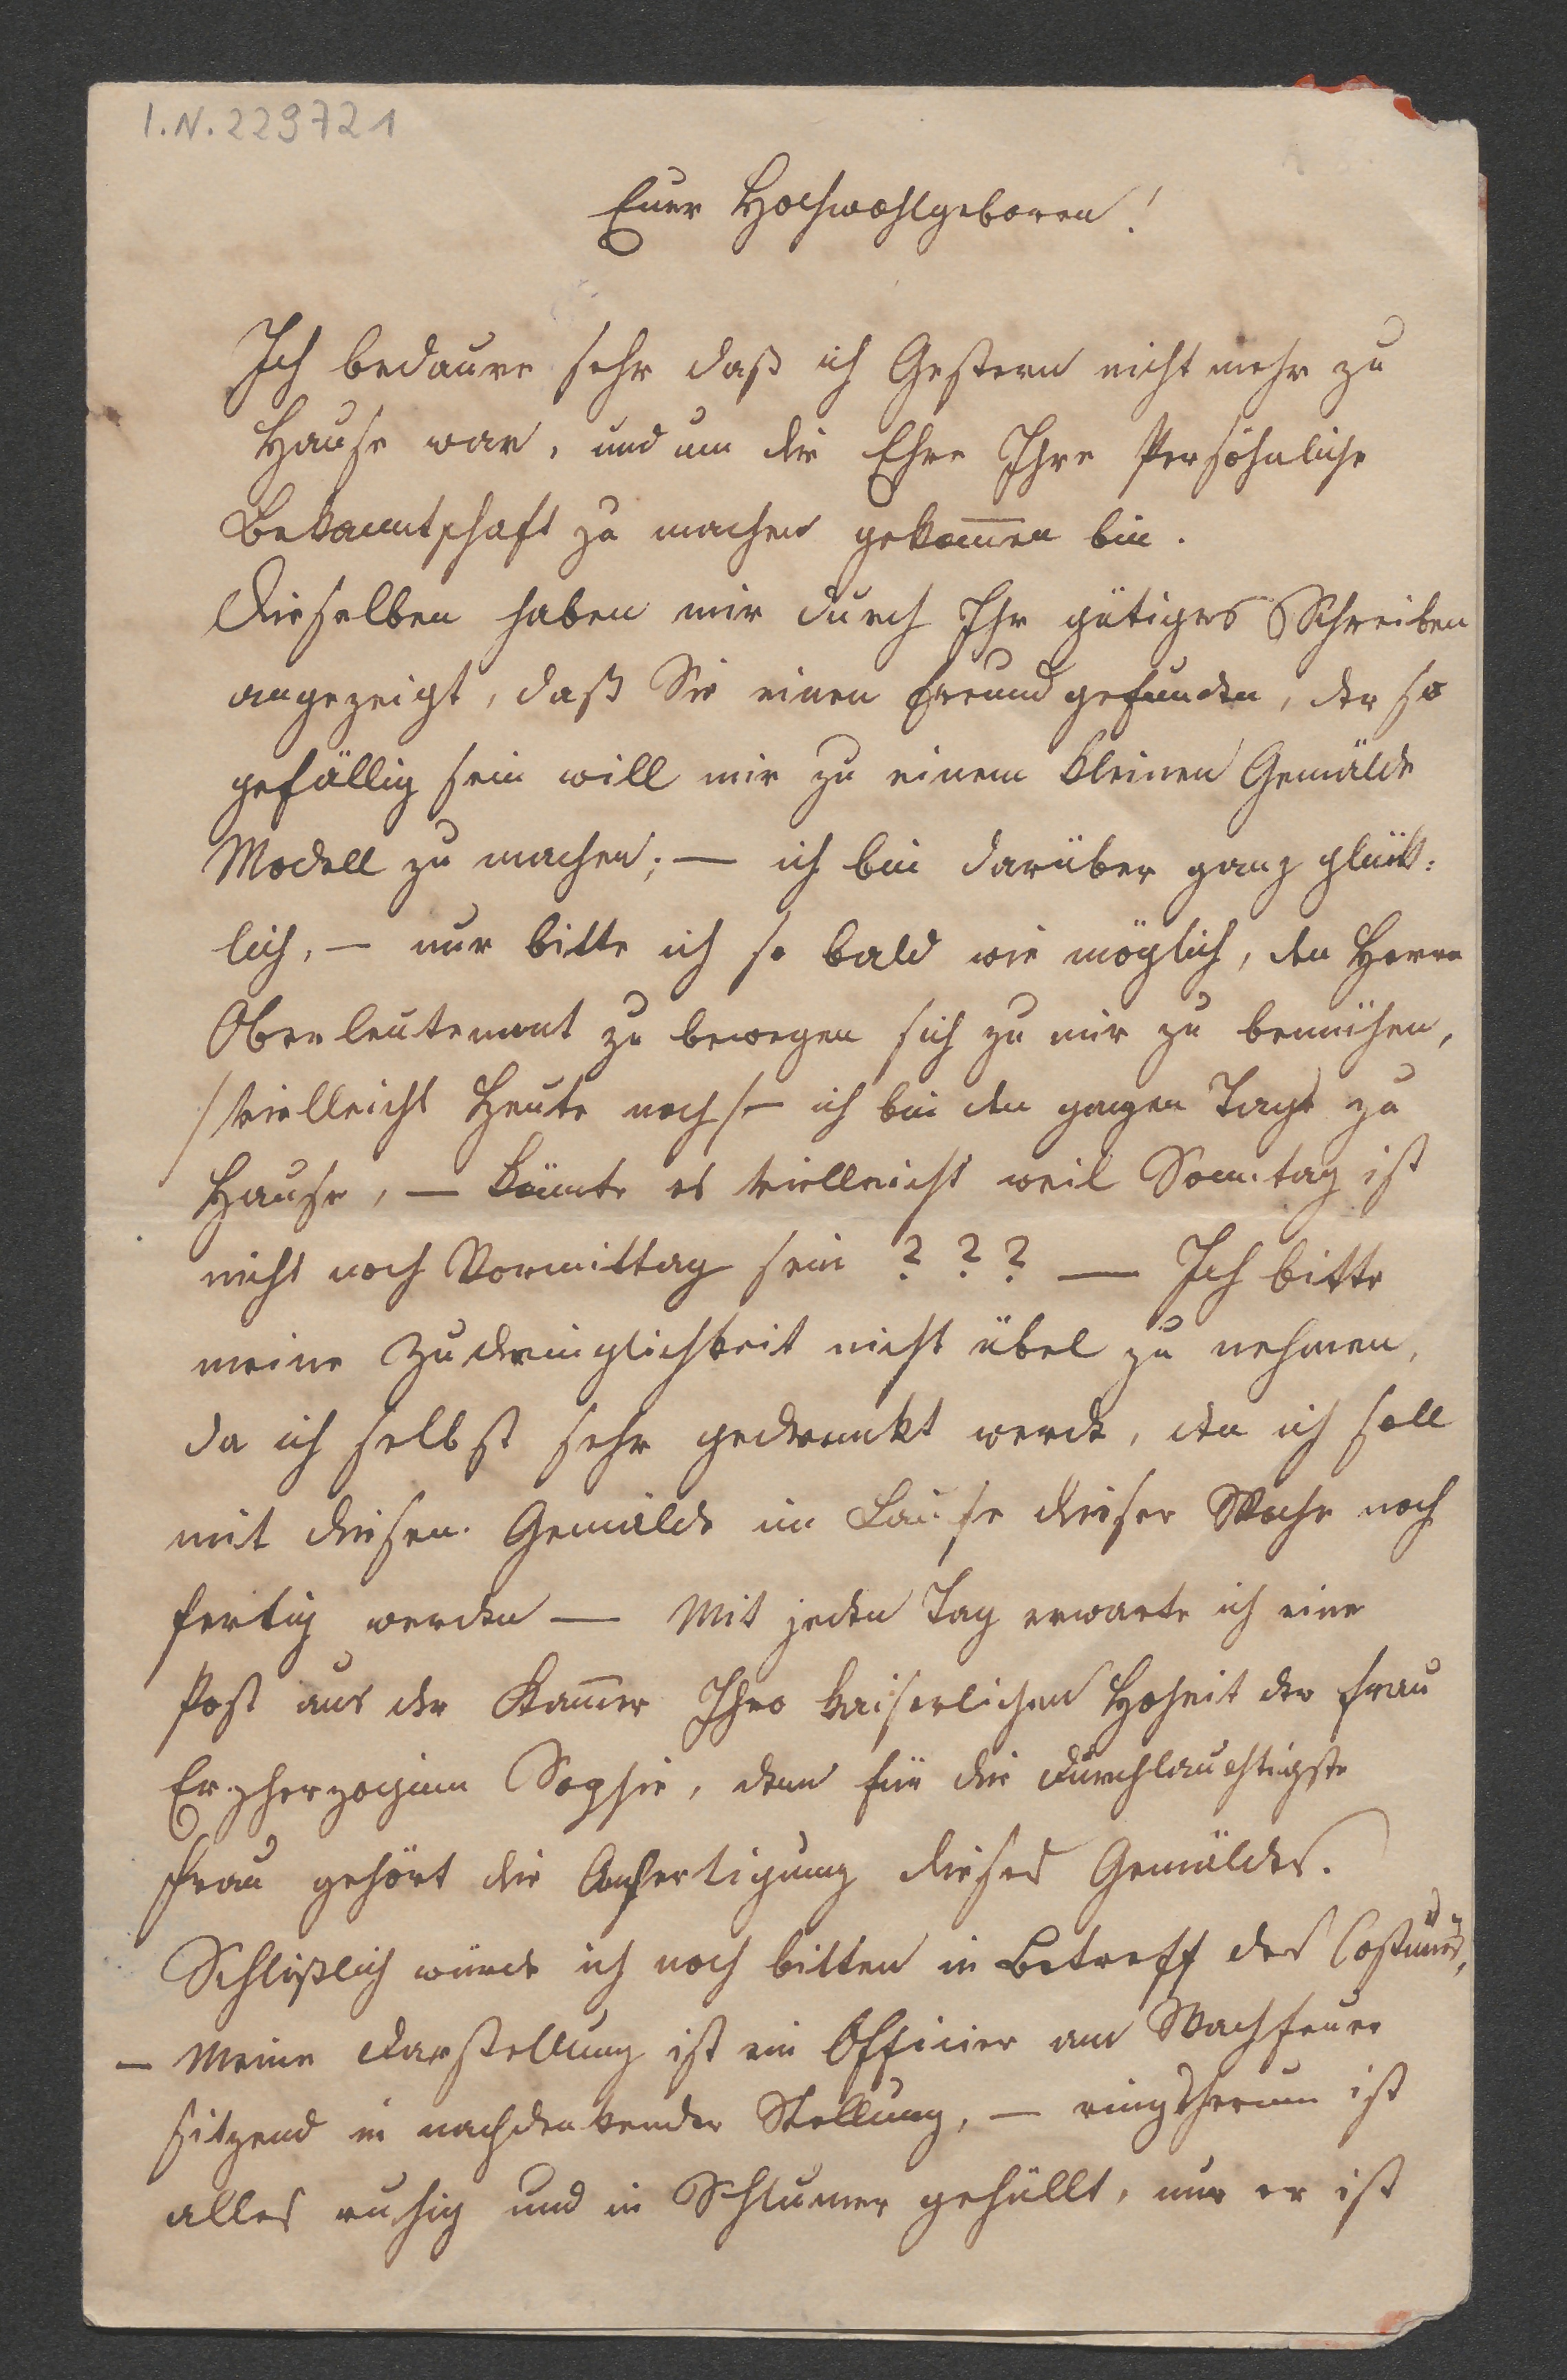 I.N. 229721
Euer Hochwohlgeboren!
Ich bedaure sehr daß ich Gestern nicht mehr zu
Hause war, und um die Ehre Ihre Persöhnliche
Bekanntschaft zu machen gekom̅en bin.
Dieselben haben mir durch Ihr gütiges Schreiben
angezeigt, daß Sie einen Freund gefunden, der so
gefällig sein will mir zu einem kleinen Gemälde
Modell zu machen; — ich bin darüber ganz glük:
lich, — nur bitte ich so bald wie möglich, den Herrn
Oberleutenant zu bewegen sich zu mir zu bemühen,
/ vielleicht Heute noch / — ich bin den ganzen Tag zu
Hause, — könnte es vielleicht weil Sonntag ist
nicht noch Vormittag sein ? ? ? — Ich bitte
meine Zudringlichkeit nicht übel zu nehmen,
da ich selbst sehr gedrenkt werde, den ich soll
mit diesen Gemälde im Laufe dieser Woche noch
fertig werden — Mit jeden Tag erwarte ich eine
Post aus der Kam̅er Ihro kaiserlichen Hoheit der Frau
Erzherzoginn Sophie, denn für die durchlauchtigste
Frau gehört die Anfertigung dieses Gemäldes.
Schlißlich würde ich noch bitten in Betreff des Costums,
— Meine Darstellung ist ein Officier am Wachfeuer
sitzend in nachdenkender Stellung, — ringsherum ist
alles ruhig und in Schlumer gehüllt, nur er ist